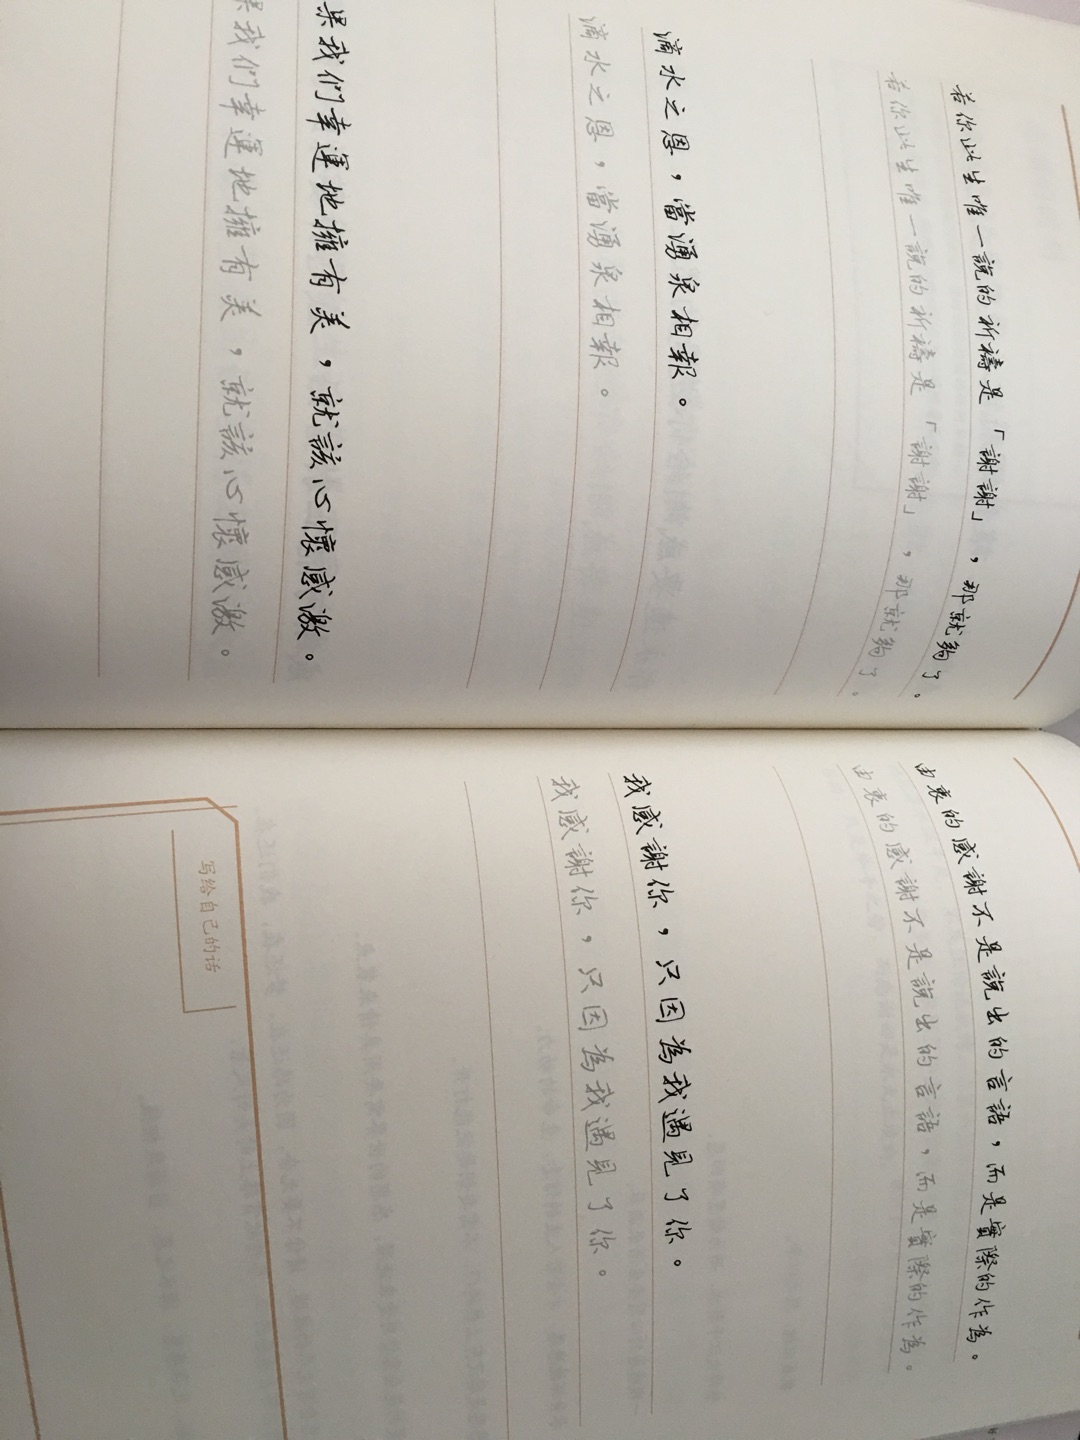 若你此生唯一說的祈禱是「謝謝」，那就夠了。
若你此生唯一說的祈禱是「謝謝」，那就夠了。
滴水之恩，當湧泉相報。
滴水之恩，當湧泉相報。
果我們幸運地擁有美，就該心懷感激。
果我們幸運地擁有美，就該心懷感激。
由衷的感謝不是說出的言語，而是實際的作為。
由衷的感謝不是說出的言語，而是實際的作為。
我感謝你，只因為我遇見了你。
我感謝你，只因為我遇見了你。
写给自己的话